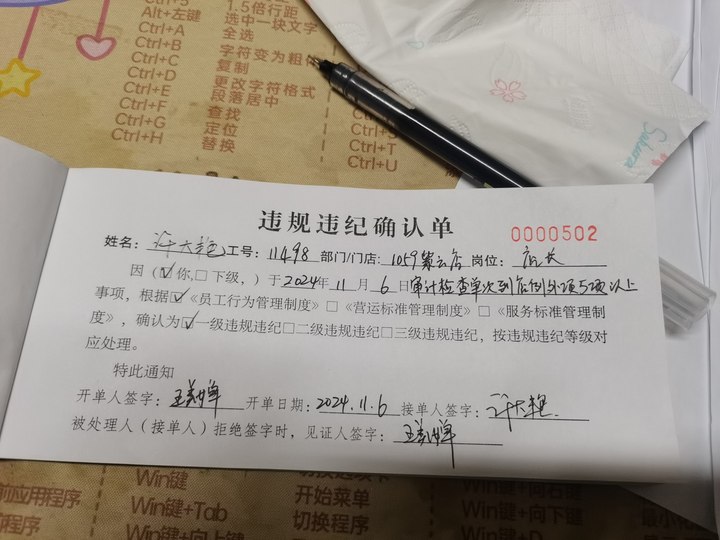 1.5倍行距
Alt+左键 选中一块文字
Ctrl+A 全选
Ctrl+B
Ctrl+C 复制
Ctrl+D 更改字符格式
Ctrl+E 段落居中
Ctrl+F 查找
Ctrl+G 定位
Ctrl+H 替换
Ctrl+T
Ctrl+U
Sakura
违规违纪确认单
0000502
姓名：许大艳 工号：11498 部门/门店：1059紫云店 岗位：店长
因（☑你,□下级，）于2024年11月6日审计检查单次到店例外项5项以上
事项，根据☑《员工行为管理制度》□《营运标准管理制度》□《服务标准管理制
度》，确认为☑一级违规违纪□二级违规违纪□三级违规违纪，按违规违纪等级对
应处理。
特此通知
开单人签字： 开单日期：2024.11.6 接单人签字：许大艳
被处理人（接单人）拒绝签字时，见证人签字：
Win键 开始菜单
Win键+Tab 切换程序
Win键+向上键
前应用程序
Win键+向右键
Win键+向下键
Win键+D